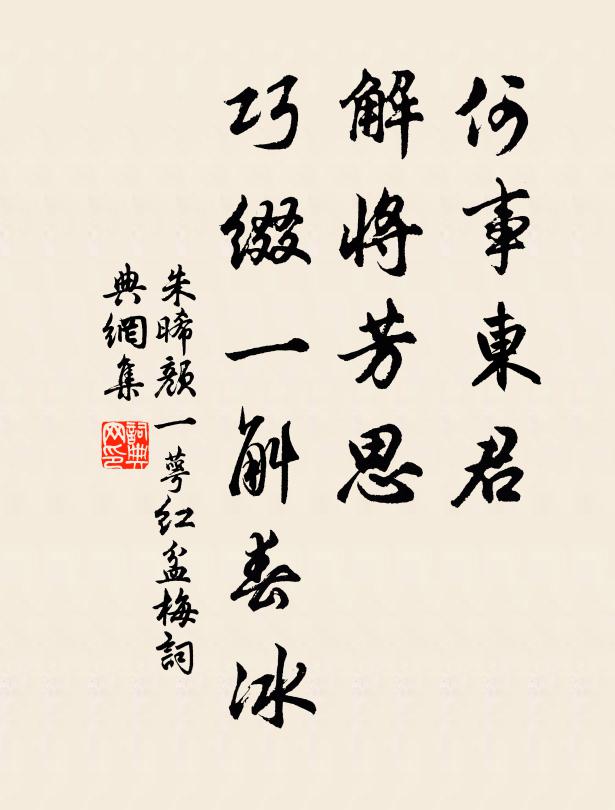 何事東君
解將芳思
巧綴一斛春冰
朱晞顏一萼紅盆梅詞
典網集
詞典網印